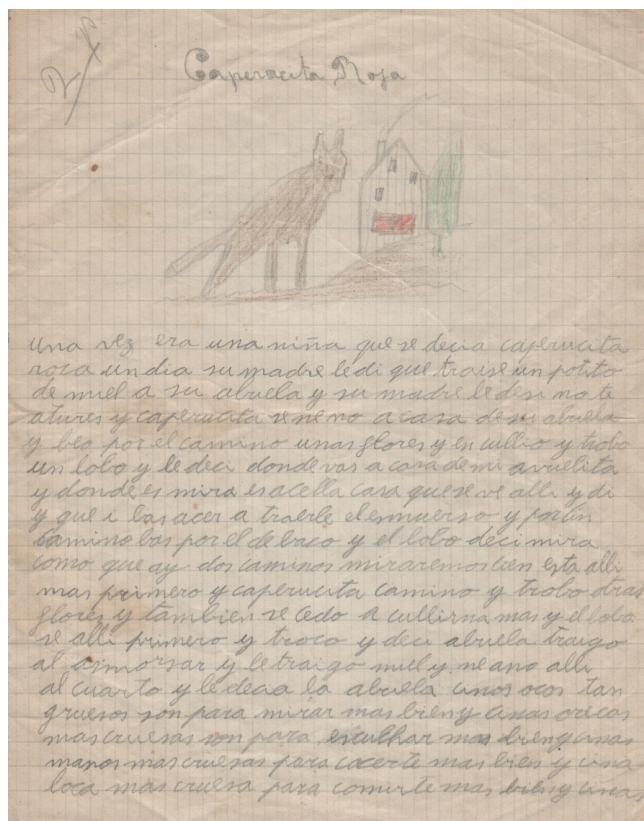 Caperucita Roja
una vez era una niña que se decia caperucita
roca un dia su madre le di que traise un potito
de miel a su abuela y su madre le desi no te
atures y caperucita se ne no a casa de su abuela
y beo por el camino unas flores y en cullio y trobo
un lobo y le deci donde vas a casa de mi avuelita
y donde es mira es acella casa que se ve alli y di
y que i bas acer a traerle el esmuerso y por un
camino bas por el de baco y el lobo deci mira
como que ay dos caminos miraremos cien esta alli
mas primero y caperucita camino y trobo otras
flores y tambien se cedo a cullirna mas y el lobo
se alli primero y troco y deci abuela traigo
al asmorsar y le traigo miel y ne ano alli
al cuarto y le decia la abuela unos ocos tan
gruesos son para mirar mas bien y unas orecas
mas cruesas son para esculhar mas bien y unas
manos mas cruesas para cocerte mas bien y una
loca mas cruesa para comerte mas bien y unas